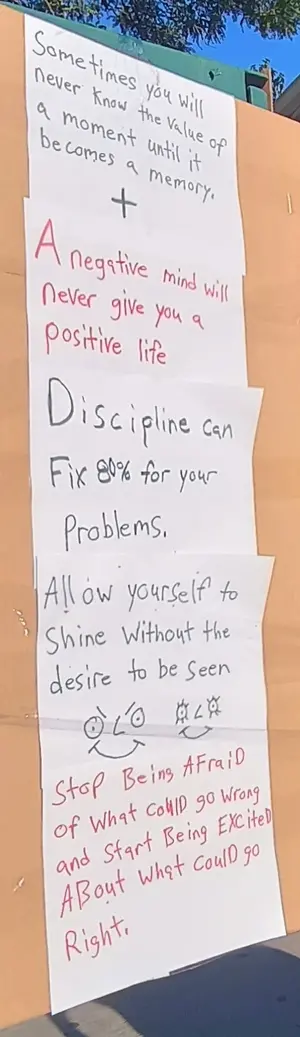 Sometimes you will
never know the value of
a moment until it
becomes a memory.
+
A negative mind will
never give you a
positive life
Discipline can
Fix 80% for your
Problems.
Allow yourself to
Shine Without the
desire to be seen
Stop Being AFraiD
of What CoulD go Wrong
and Start Being EXciteD
ABout What CoulD go
Right.